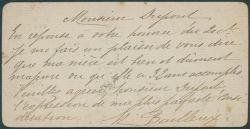 Monsieur Dupont
En réponse à votre honorée des 20 ct
Je me fais un plaisir de vous dire
que ma nièce est bien et dûment
majeure vu qu'elle a 32 ans accomplis
Veuillez agréer, Monsieur Dupont,
l'expression de ma plus parfaite considération
M.